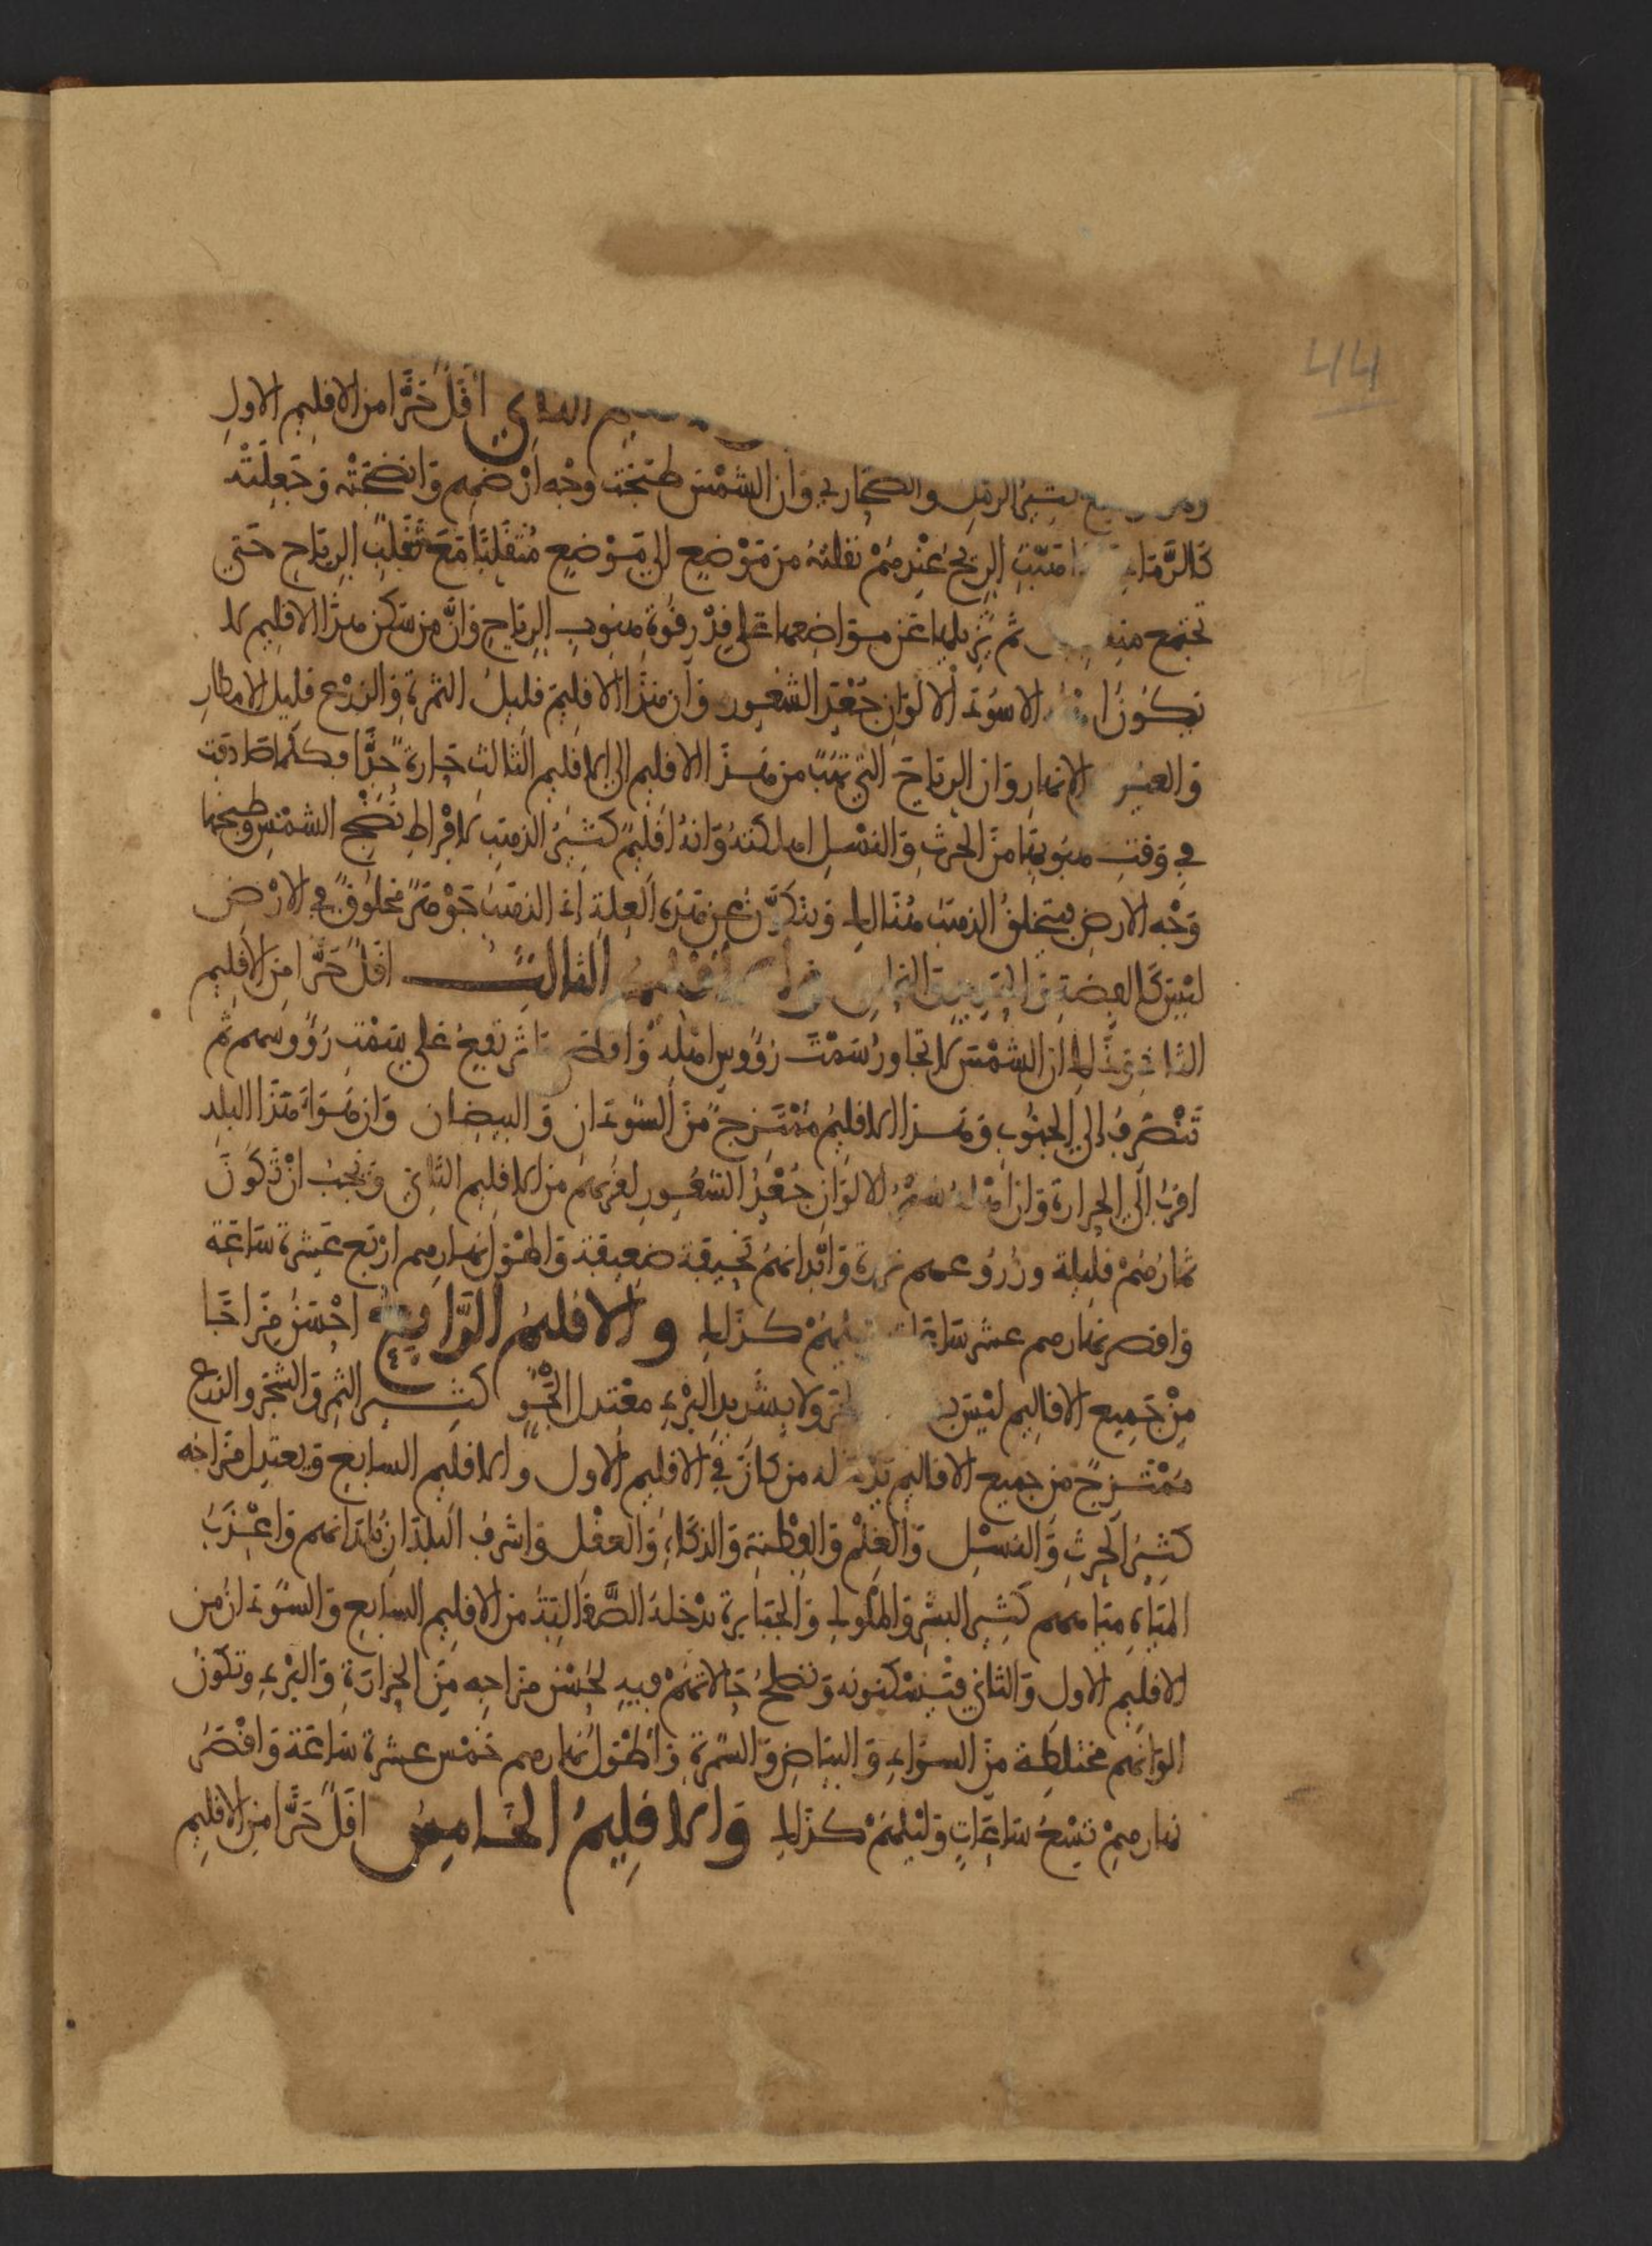 44
أقل حرا من الاقليم الاول
الرمل والصحاري وان الشمس طبخت وجه أرضهم وانضجته وجعلته
هبت الريح عندهم نقلته من موضع الى موضع متقلبا مع تقلب الرياح حتى
تجتمع ثم تزيلها عن مواضعها على قدر قوة هبوب الرياح وان من سكن هذا الاقليم لا
يكون الا اسود الالوان جعد الشعور وان هذا الاقليم قليل الثمرة والزرع قليل الامطار
الانهار وان الرياح التي تهب من هذا الاقليم الى الاقليم الثالث حارة جدا فكلما صادفت
في وقت هبوبها من الحرث والنسل اهلكته وانه اقليم كثير الذهب لافراط نضج الشمس وطبخها
وجه الارض فيتخلق الذهب هنالك ويتكون عن هذه العلة اذ الذهب جوهر مخلوق في الارض
ليس كالفضة الثالث اقل حرا من الاقليم
الشمس لا تجاوز سمت رؤوس اهله على سمت رؤوسهم ثم
تنصرف الى الجنوب وهذا الاقليم ممتزج من السودان والبيضان وان هواء هذا البلد
اقرب الى الحرارة وان اهله سمر الالوان جعد الشعور لقربهم من الاقليم الثاني ويجب ان تكون
ثمارهم قليلة وزروعهم وابدانهم نحيفة ضعيفة واطول نهارهم اربع عشرة ساعة
واقصر نهارهم عشر ساعات كذلك والاقليم الرابع احسن مزاجا
من جميع الاقاليم ليس ولا بشديد البرد معتدل الجو كثير الثمر والشجر والزرع
ممتزج من جميع الاقاليم من كان في الاقليم الاول والاقليم السابع ويعتدل مزاجه
كثير الحرث والنسل والعلم والفطنة والذكاء والعقل واشرف البلدان واعذب
المياه مياههم كثير البشر والملوك والجبابرة تدخله الصقالبة من الاقليم السابع والسودان من
الاقليم الاول والثاني فيسكنونه وتصلح حالاتهم فيه لحسن مزاجه من الحرارة والبرد وتكون
الوانهم مختلطة من السواد والبياض والسمرة واطول نهارهم خمس عشرة ساعة واقصر
نهارهم تسع ساعات وليلهم كذلك والاقليم الخامس اقل حرا من الاقليم